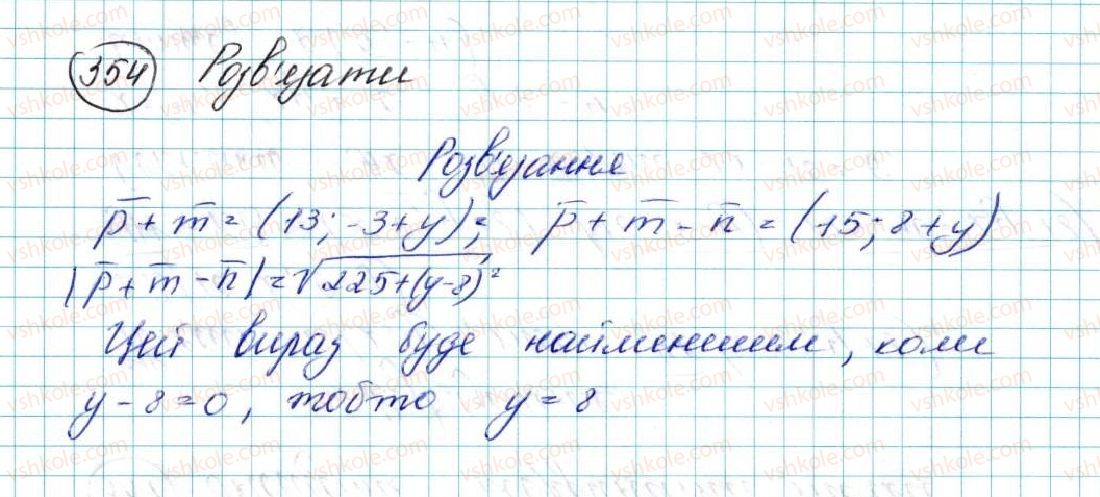 354 Розв'язати
Розв'язання
p̅ + m̅ = (13; -3+y); p̅ + m̅ - n̅ = (15; 8+y)
|p̅ + m̅ - n̅| = √225+(y-8)²
Цей вираз буде найменшим, коли
y - 8 = 0, тобто y = 8